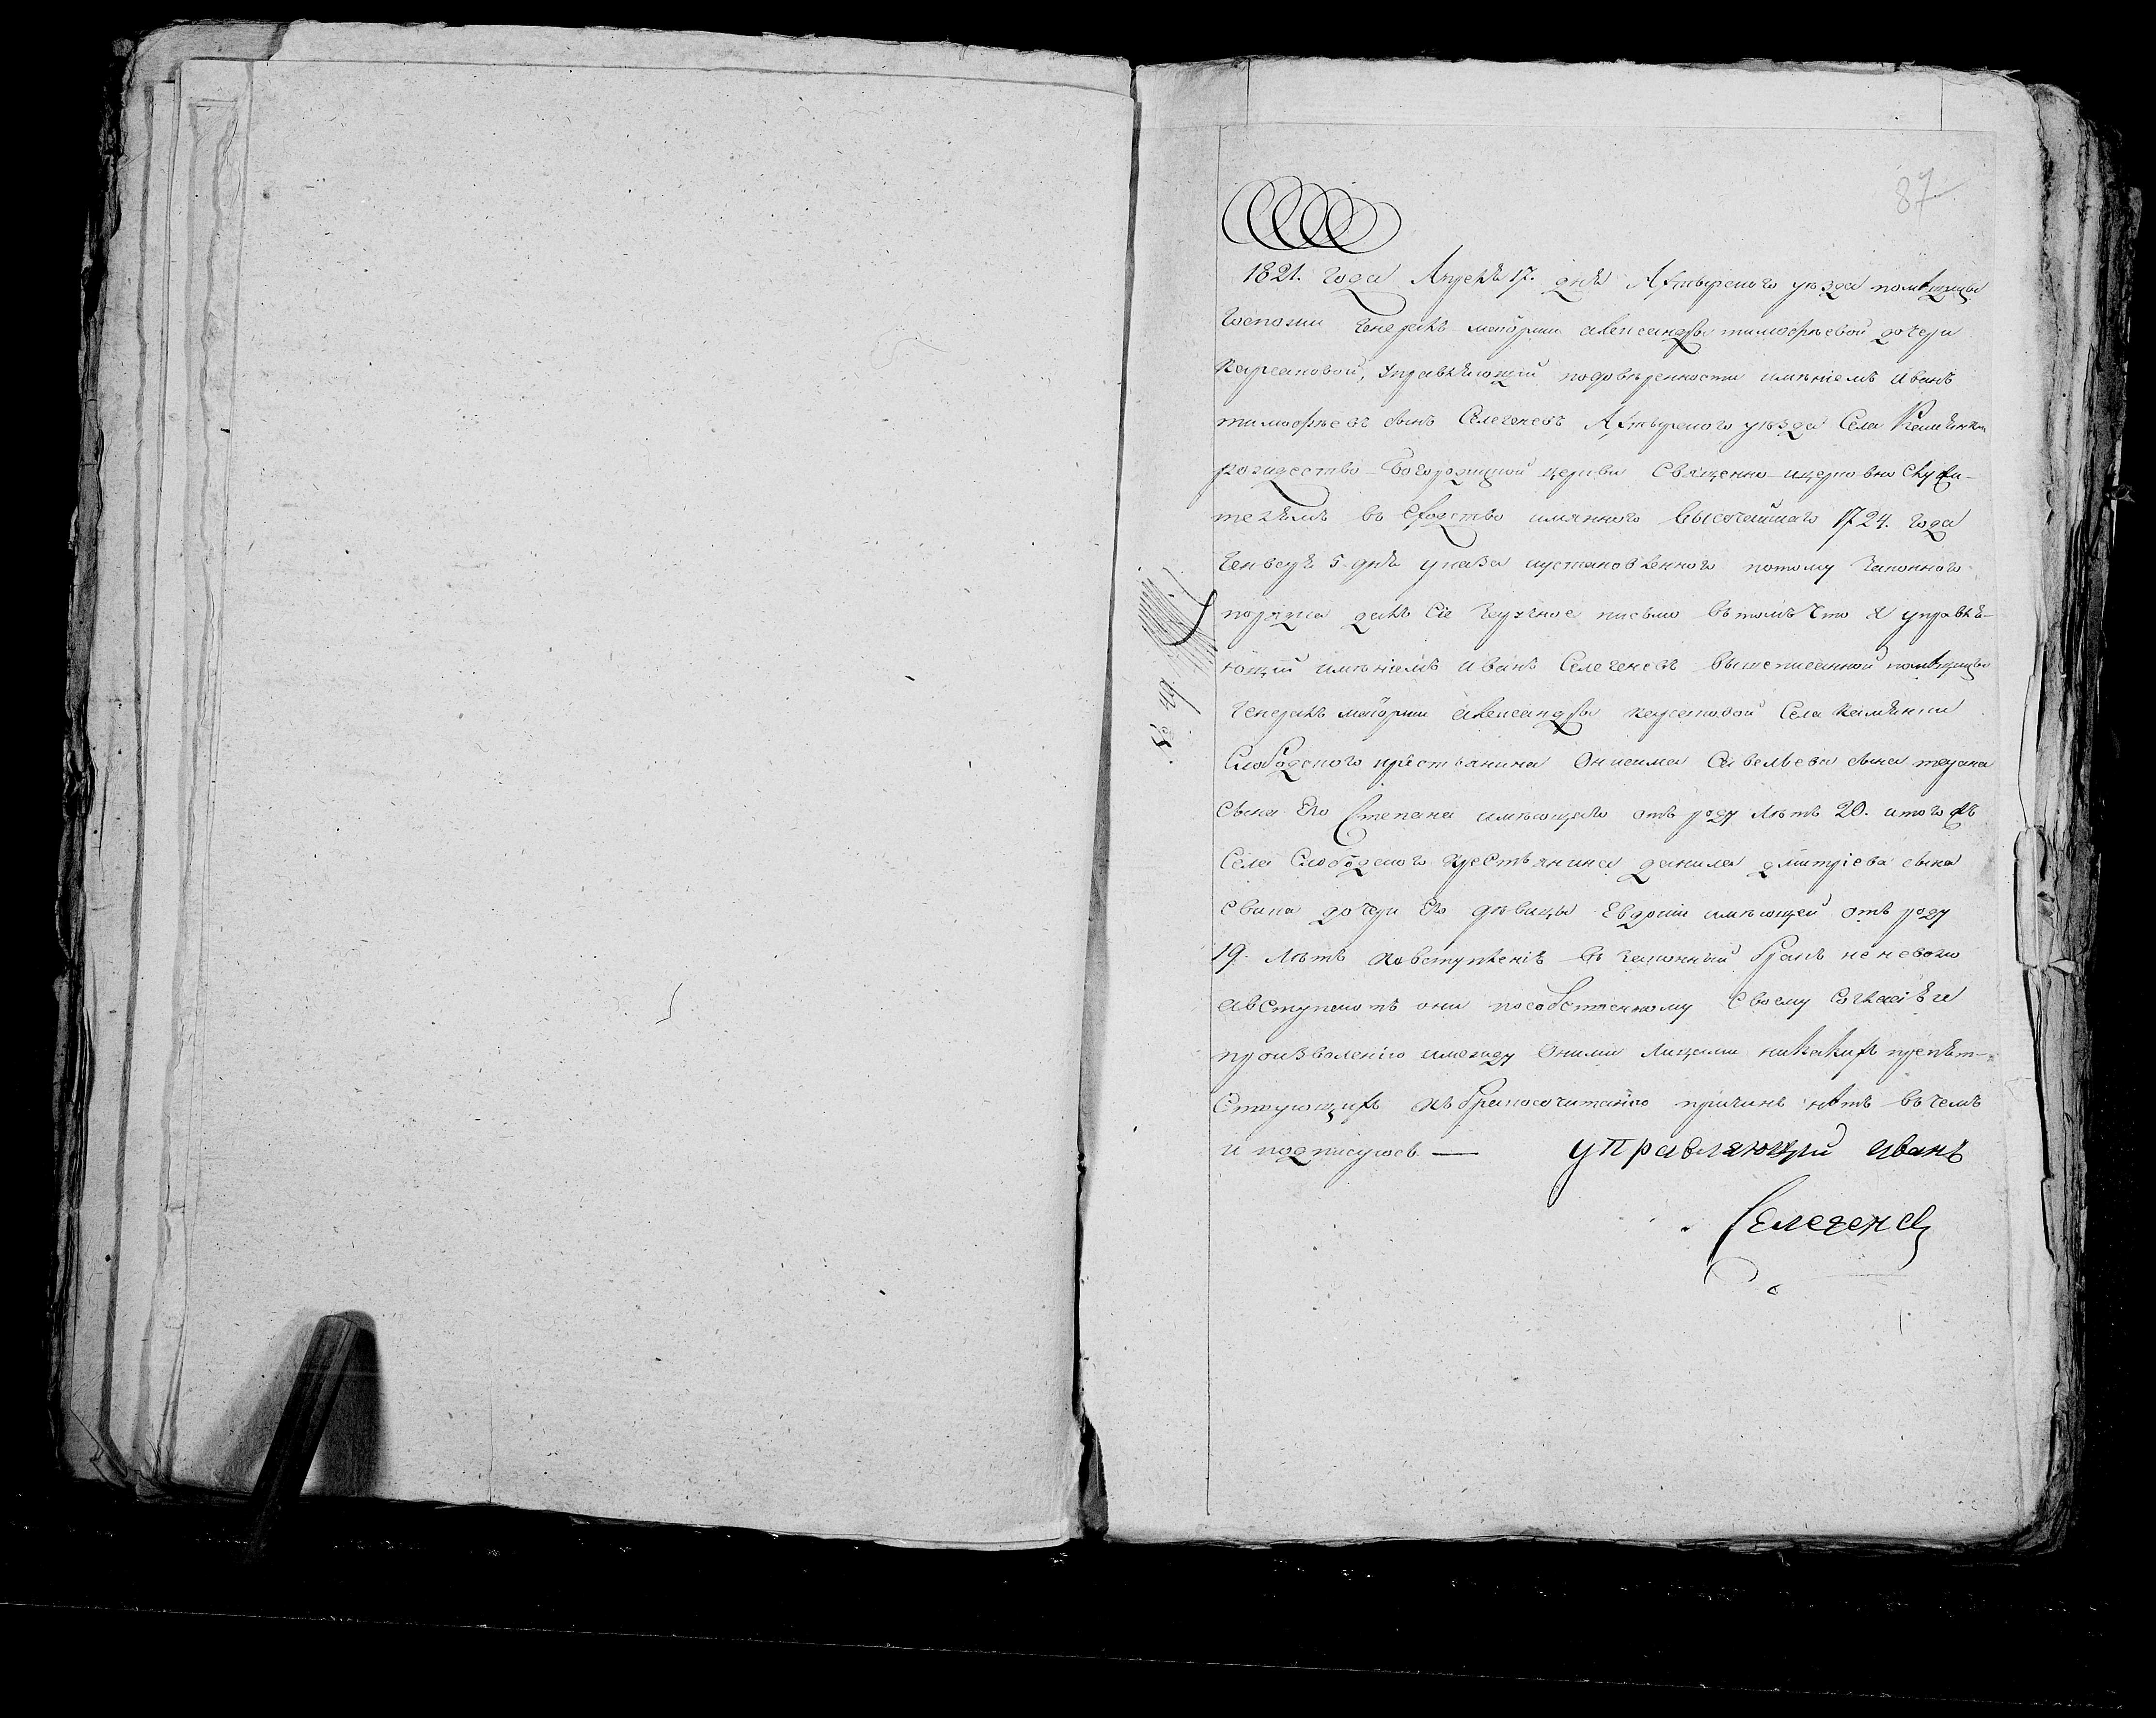 87
1821. года Апреля 17. дня Ахтырского уезда помѣщицы
Госпожи Генералъ маіорши александры тимофѣевой дочери
Карсаковой, Управляющій подовѣренности имѣніемъ Иванъ
тимофѣевъ сынъ Селегеневъ Ахтырского уѣзда Села
рождество Богородицкой церкви Священно ицерковно Служи-
телямъ въ Сходство имянного высочайшаго 1724. года
Генваря 5 дня указа иустановленного потому законного
порядка далъ Сіе письмо втомъ Что я управля-
ющій имѣніемъ Иванъ Селегеневъ вышеписанной помѣщицы
Генералъ маіорши александры Карсаковой Села
Слободского крестьянина Онисима Савельева сына
Сына Его Степана имѣющаго отъ роду лѣтъ 20. итогожъ
Села Слободского крестьянина данила дмитріева сына
дочери Его дѣвицы Евдокіи имѣющей отъ роду
19. лѣтъ ковступленію въ законный бракъ неневолю
авступаютъ они пособственному Своему Согласію и
произволенію имежду Оными лицами никакихъ препят-
Ствующихъ къ бракосочитанію причинъ нѣтъ вчемъ
и подписуюсь — управляющій иванъ
Селегеневъ